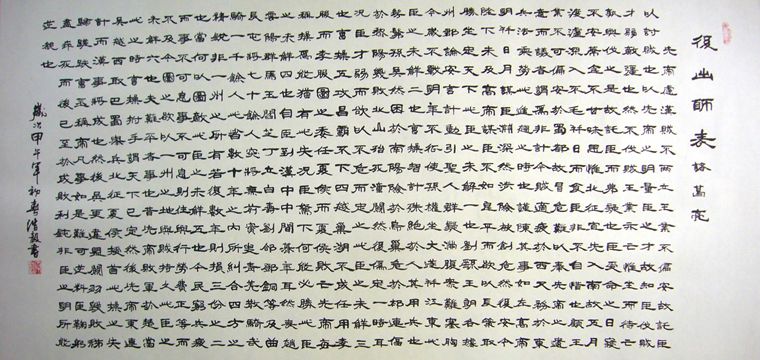 後出師表 諸葛亮
先帝慮漢賊不兩立王業不偏安故託臣
以討賊也以先帝之明量臣之才故知臣伐賊
才弱敵強也然不伐賊王業亦亡惟坐而待亡
孰與伐之是故託臣而弗疑也臣受命之日寢
不安席食不甘味思惟北征宜先入南故五月
渡瀘深入不毛并日而食臣非不自惜也顧王
業不可偏安於蜀都故冒危難以奉先帝之遺
意也而議者謂為非計今賊適疲於西又務於東
兵法乘勞此進趨之時也謹陳其事如左高帝
明並日月謀臣淵深然涉險被創危然後安今
陛下未及高帝謀臣不如良平而欲以長策取
勝坐定天下此臣之未解一也劉繇王朗各據
州郡論安言計動引聖人群疑滿腹眾難塞胸
今歲不戰明年不征使孫權坐大遂并江東此
臣之未解二也曹操智計殊絕於人其用兵也
彷彿孫吳然困於南陽險於烏巢危於祁連偪
於黎陽幾敗北山殆死潼關然後偽定一時耳
況臣才弱而欲以不危而定之此臣之未解三
也曹操五攻昌霸不下四越巢湖不成任用李
服而李服圖之委任夏侯而夏侯敗亡先帝每
稱操為能猶有此失況臣駑下何能必勝此臣
之未解四也自臣到漢中中間期年耳然喪趙
雲陽群馬玉閻芝丁立白壽劉郃鄧銅等及曲
長屯將七十餘人突將無前賨叟青羌散騎武
騎一千餘人此皆數十年之內所糾合四方之
精銳非一州之所有若復數年則損三分之二
也當何以圖敵此臣之未解五也今民窮兵疲
而事不可息事不可息則住與行勞費正等而
不及今圖之欲以一州之地與賊持久此臣之
未解六也夫難平者事也昔先帝敗軍於楚當
此時曹操拊手謂天下以定然後先帝東連
吳越西取巴蜀舉兵北征夏侯授首此操之失
計而漢事將成也然後吳更違盟關羽毀敗秭
歸蹉跌曹丕稱帝凡事如是難可逆見臣鞠躬
盡瘁死而後已至於成敗利鈍非臣之明所能
逆覩也
歲次甲午年初春浩毅書